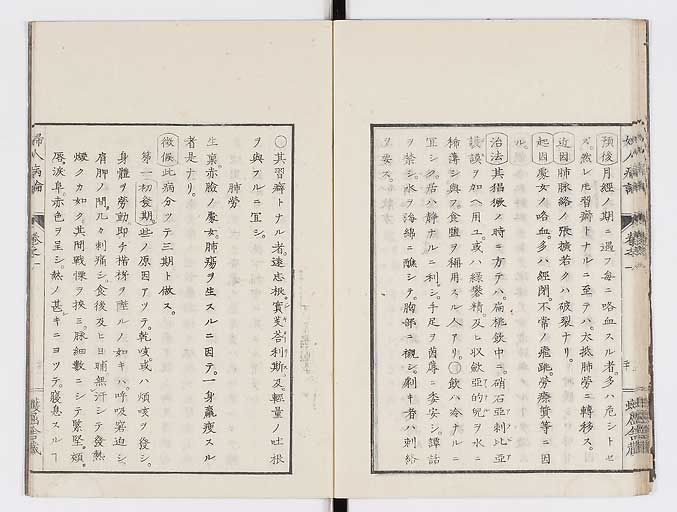 預後 月經ノ期ニ過フ毎ニ咯血スル者。多ハ危シトセ
ズ。然レ𪜈習癖トナルニ至テハ。大抵肺勞ニ轉移ス。
近因 肺脈絡ノ張擴若クハ破裂ナリ。
起因 處女ノ咯血。多ハ經閉。不常ノ飛跳。勞療質等ニ因
ル。
治法 其猖獗ノ時ニ方テハ。扁桃飲中ニ。硝石亞刺比亞
護謨ヲ加ヘ用ユ。或ハ緑礬精。及ヒ收斂亞的兒ヲ水ニ
稀薄シ與フ。食鹽ヲ稱用スル人アリ。飲ハ冷ナルニ
宜シク。居ハ靜ナルニ利シ。手足ヲ茵蓐ニ委安シ。譚話
ヲ禁シ。水ヲ海綿ニ蘸シテ。胸部ニ襯シ。劇キ者ハ刺絡
ヲ妄ス。
婦人病論
卷之一
○其習癖トナル者。遠志根。實芰荅利斯。及輕量ノ吐根
ヲ與フルニ宜シ。
肺勞
生稟赤臉ノ處女。肺瘍ヲ生スルニ因テ。一身羸瘦スル
者是ナリ。
徴候 此病分ツテ三期ト做ス。
第一初發期。些ノ原因アツテ。乾咳或ハ煩咳ヲ發シ。
身體ヲ勞動。即チ楷梯ヲ陞ルノ如キハ。呼吸窘迫シ。
肩胛ノ間。凢々刺痛シ。食後及ヒ日晡無汗シテ發熱
燒クカ如ク。其間戰慄ヲ挾ミ。脈細數ニシテ緊堅。頬。
唇。淚阜。赤色ヲ呈シ。熱ノ甚キニヨツテ。寢息スルヿ
婦人病論
卷之一